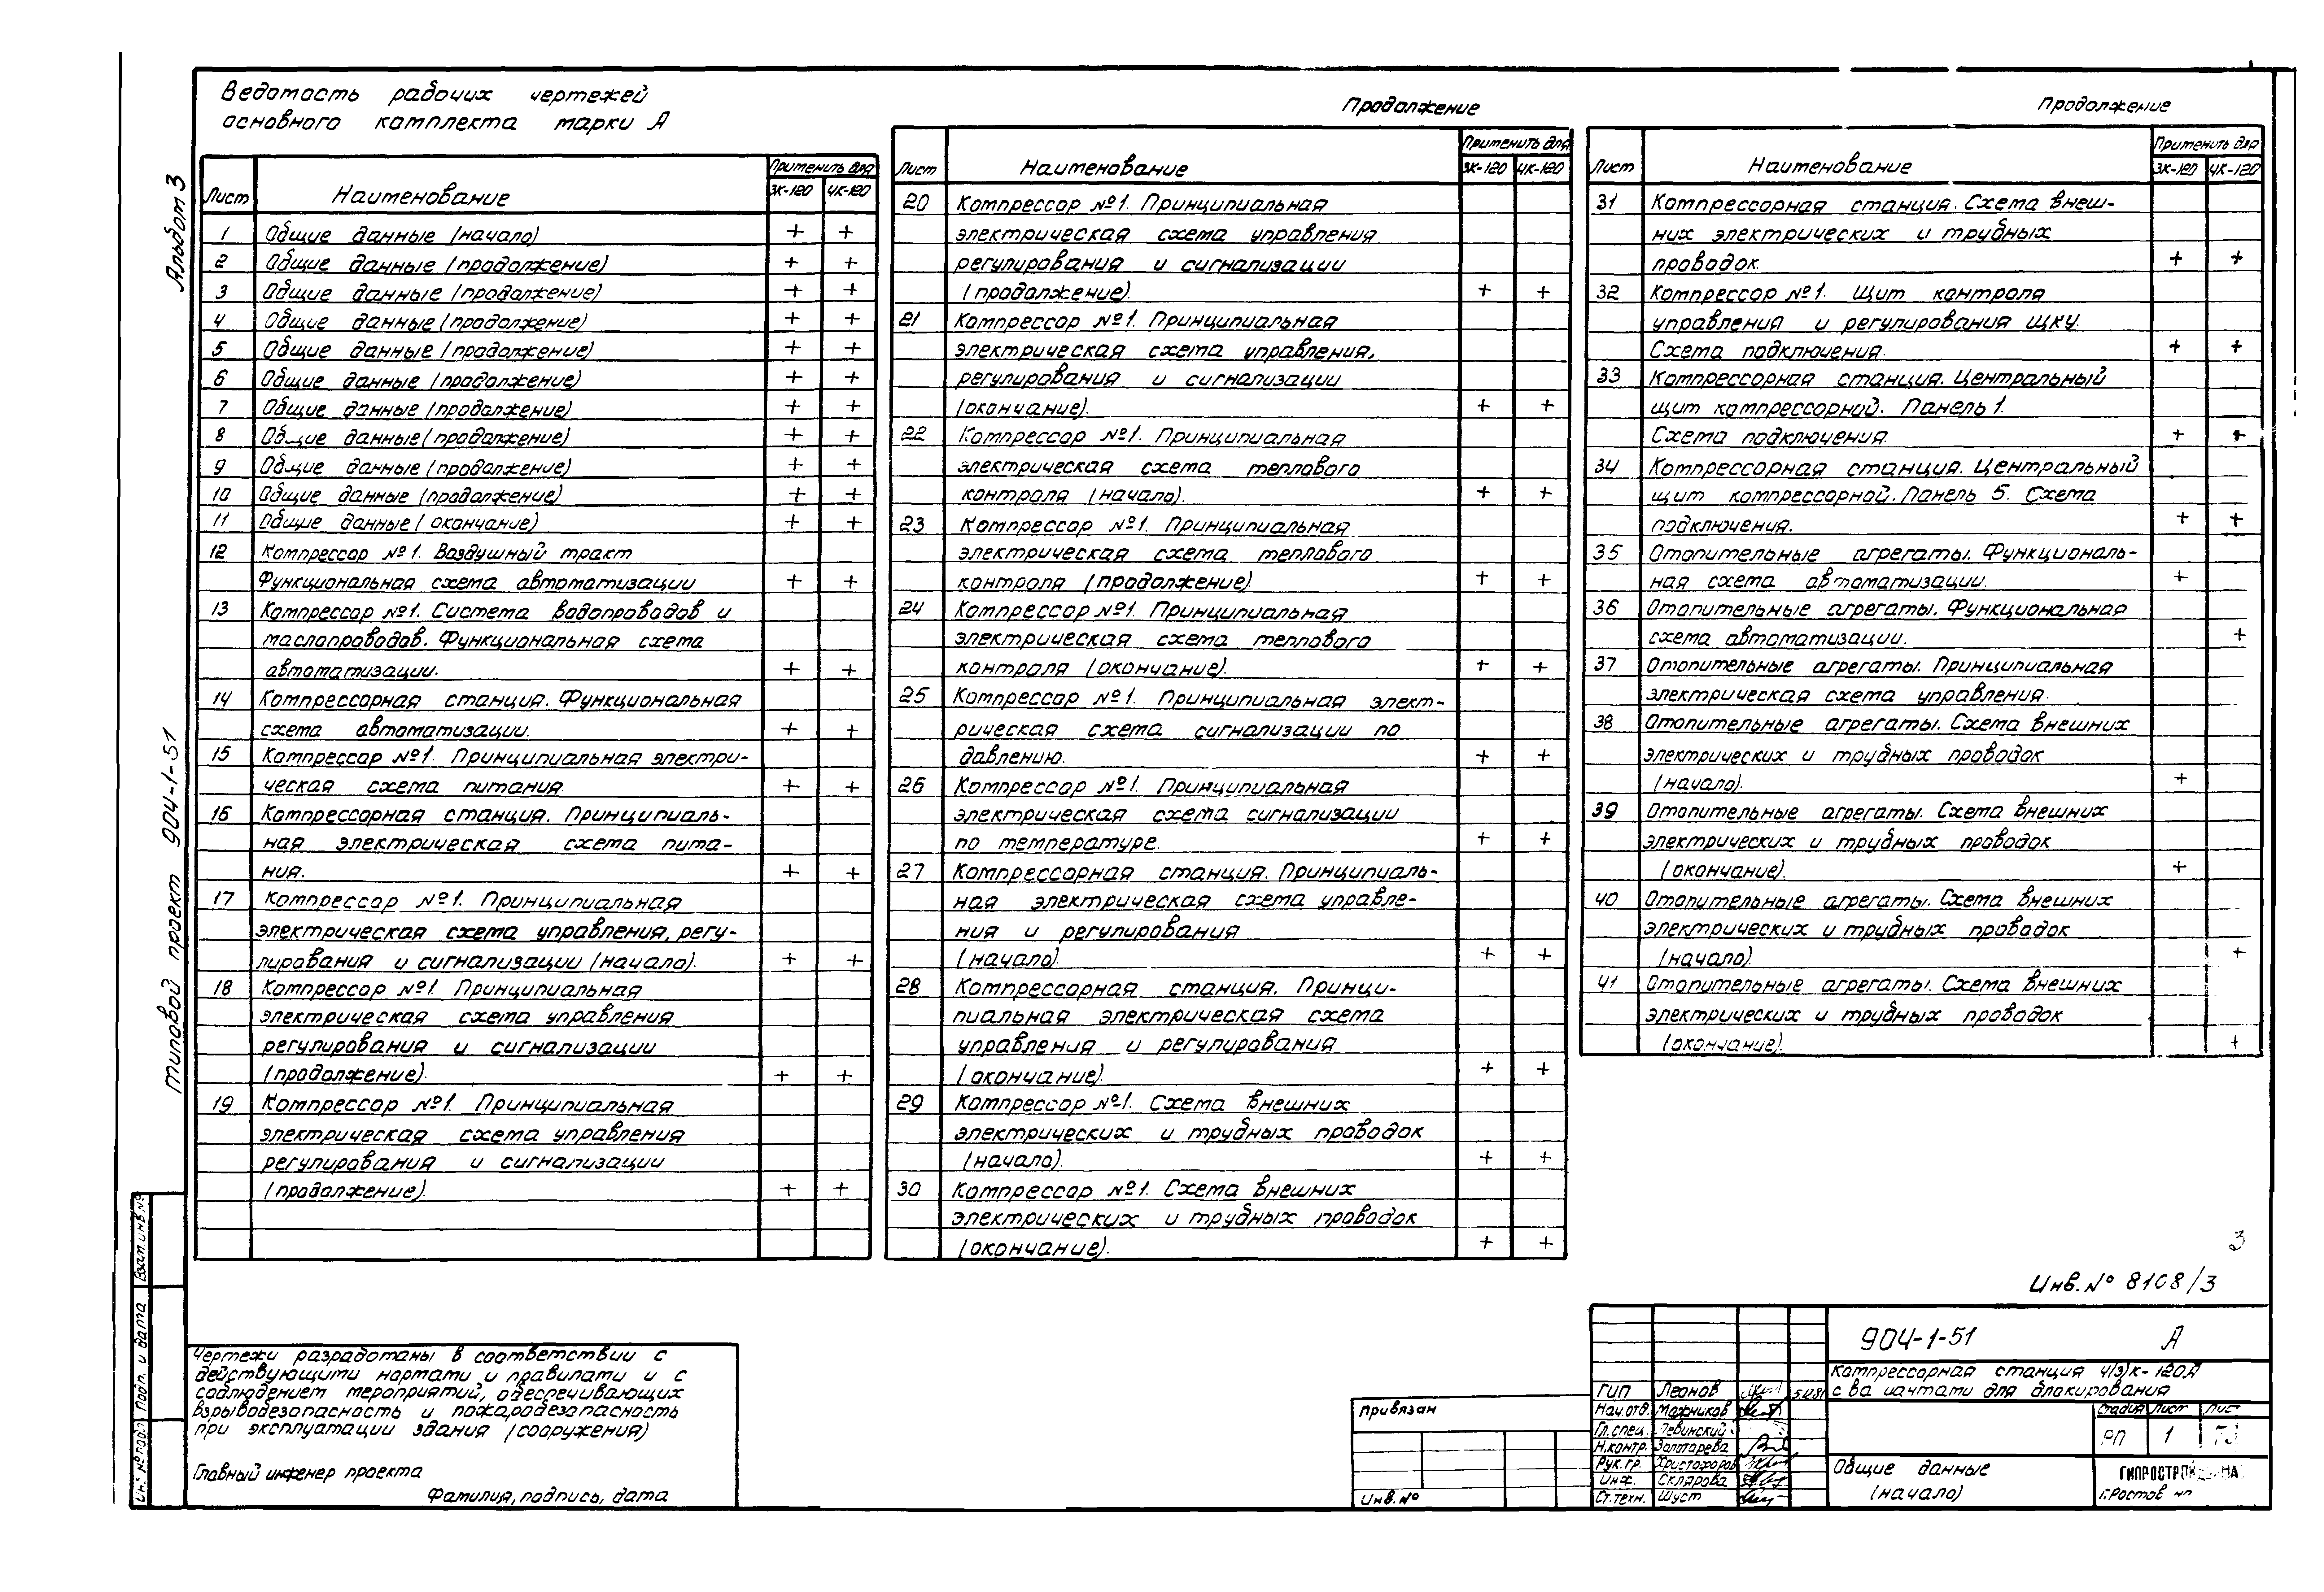 Ведомость рабочих чертежей
основного комплекта марки А
Лист Наименование Применить для
3К-120 4К-120
1 Общие данные (начало) + +
2 Общие данные (продолжение) + +
3 Общие данные (продолжение) + +
4 Общие данные (продолжение) + +
5 Общие данные (продолжение) + +
6 Общие данные (продолжение) + +
7 Общие данные (продолжение) + +
8 Общие данные (продолжение) + +
9 Общие данные (продолжение) + +
10 Общие данные (продолжение) + +
11 Общие данные (окончание) + +
12 Компрессор №1. Воздушный тракт
Функциональная схема автоматизации + +
13 Компрессор №1. Система водопроводов и
маслопроводов. Функциональная схема
автоматизации. + +
14 Компрессорная станция. Функциональная
схема автоматизации. + +
15 Компрессор №1. Принципиальная электри-
ческая схема питания. + +
16 Компрессорная станция. Принципиаль-
ная электрическая схема пита-
ния. + +
17 Компрессор №1. Принципиальная
электрическая схема управления, регу-
лирования и сигнализации (начало). + +
18 Компрессор №1. Принципиальная
электрическая схема управления
регулирования и сигнализации
(продолжение). + +
19 Компрессор №1. Принципиальная
электрическая схема управления
регулирования и сигнализации
(продолжение). + +
Продолжение
Лист Наименование Применить для
3К-120 4К-120
20 Компрессор №1. Принципиальная
электрическая схема управления
регулирования и сигнализации
(продолжение). + +
21 Компрессор №1. Принципиальная
электрическая схема управления,
регулирования и сигнализации
(окончание). + +
22 Компрессор №1. Принципиальная
электрическая схема теплового
контроля (начало). + +
23 Компрессор №1. Принципиальная
электрическая схема теплового
контроля (продолжение). + +
24 Компрессор №1. Принципиальная
электрическая схема теплового
контроля (окончание). + +
25 Компрессор №1. Принципиальная элект-
рическая схема сигнализации по
давлению. + +
26 Компрессор №1. Принципиальная
электрическая схема сигнализации
по температуре. + +
27 Компрессорная станция. Принципиаль-
ная электрическая схема управле-
ния и регулирования
(начало). + +
28 Компрессорная станция. Принци-
пиальная электрическая схема
управления и регулирования
(окончание). + +
29 Компрессор №1. Схема внешних
электрических и трубных проводок
(начало). + +
30 Компрессор №1. Схема внешних
электрических и трубных проводок
(окончание). + +
Продолжение
Лист Наименование Применить для
3К-120 4К-120
31 Компрессорная станция. Схема внеш-
них электрических и трубных
проводок. + +
32 Компрессор №1. Щит контроля
управления и регулирования ЩКУ.
Схема подключения. + +
33 Компрессорная станция. Центральный
щит компрессорной. Панель 1.
Схема подключения. + +
34 Компрессорная станция. Центральный
щит компрессорной. Панель 5. Схема
подключения. + +
35 Отопительные агрегаты. Функциональ-
ная схема автоматизации. +
36 Отопительные агрегаты. Функциональная
схема автоматизации. +
37 Отопительные агрегаты. Принципиальная
электрическая схема управления.
38 Отопительные агрегаты. Схема внешних
электрических и трубных проводок
(начало). +
39 Отопительные агрегаты. Схема внешних
электрических и трубных проводок
(окончание). +
40 Отопительные агрегаты. Схема внешних
электрических и трубных проводок
(начало) +
41 Отопительные агрегаты. Схема внешних
электрических и трубных проводок
(окончание). +
Альбом 3
Типовой проект 904-1-51
Взам инв №
Подп. и дата
Инв. № подл
3
Инв. № 8108/3
Чертежи разработаны в соответствии с
действующими нормами и правилами и с
соблюдением мероприятий, обеспечивающих
взрывобезопасность и пожаробезопасность
при эксплуатации здания (сооружения)
Главный инженер проекта
Фамилия, подпись, дата
Привязан
Инв. №
ГИП Леонов
Нач. отд. Мажников
Гл. спец. Левинский
Н. контр. Золотарева
Рук. гр. Христофоров
Инж. Склярова
Ст. техн. Шуст
904-1-51 А
Компрессорная станция 4(3)К-120А
для блокирования
Стадия Лист
РП 1
Общие данные
(начало)
г. Ростов